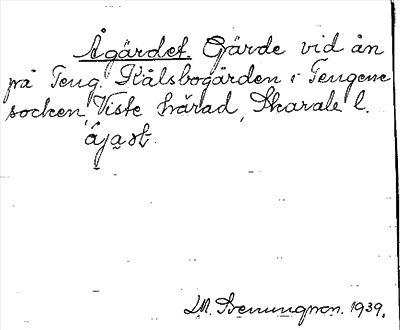 Ågärdet. Gärde vid ån
på Teng. Kålsbogården i Tengene
socken, Viste härad, Skarab. l.
åjaṣt.
1939.